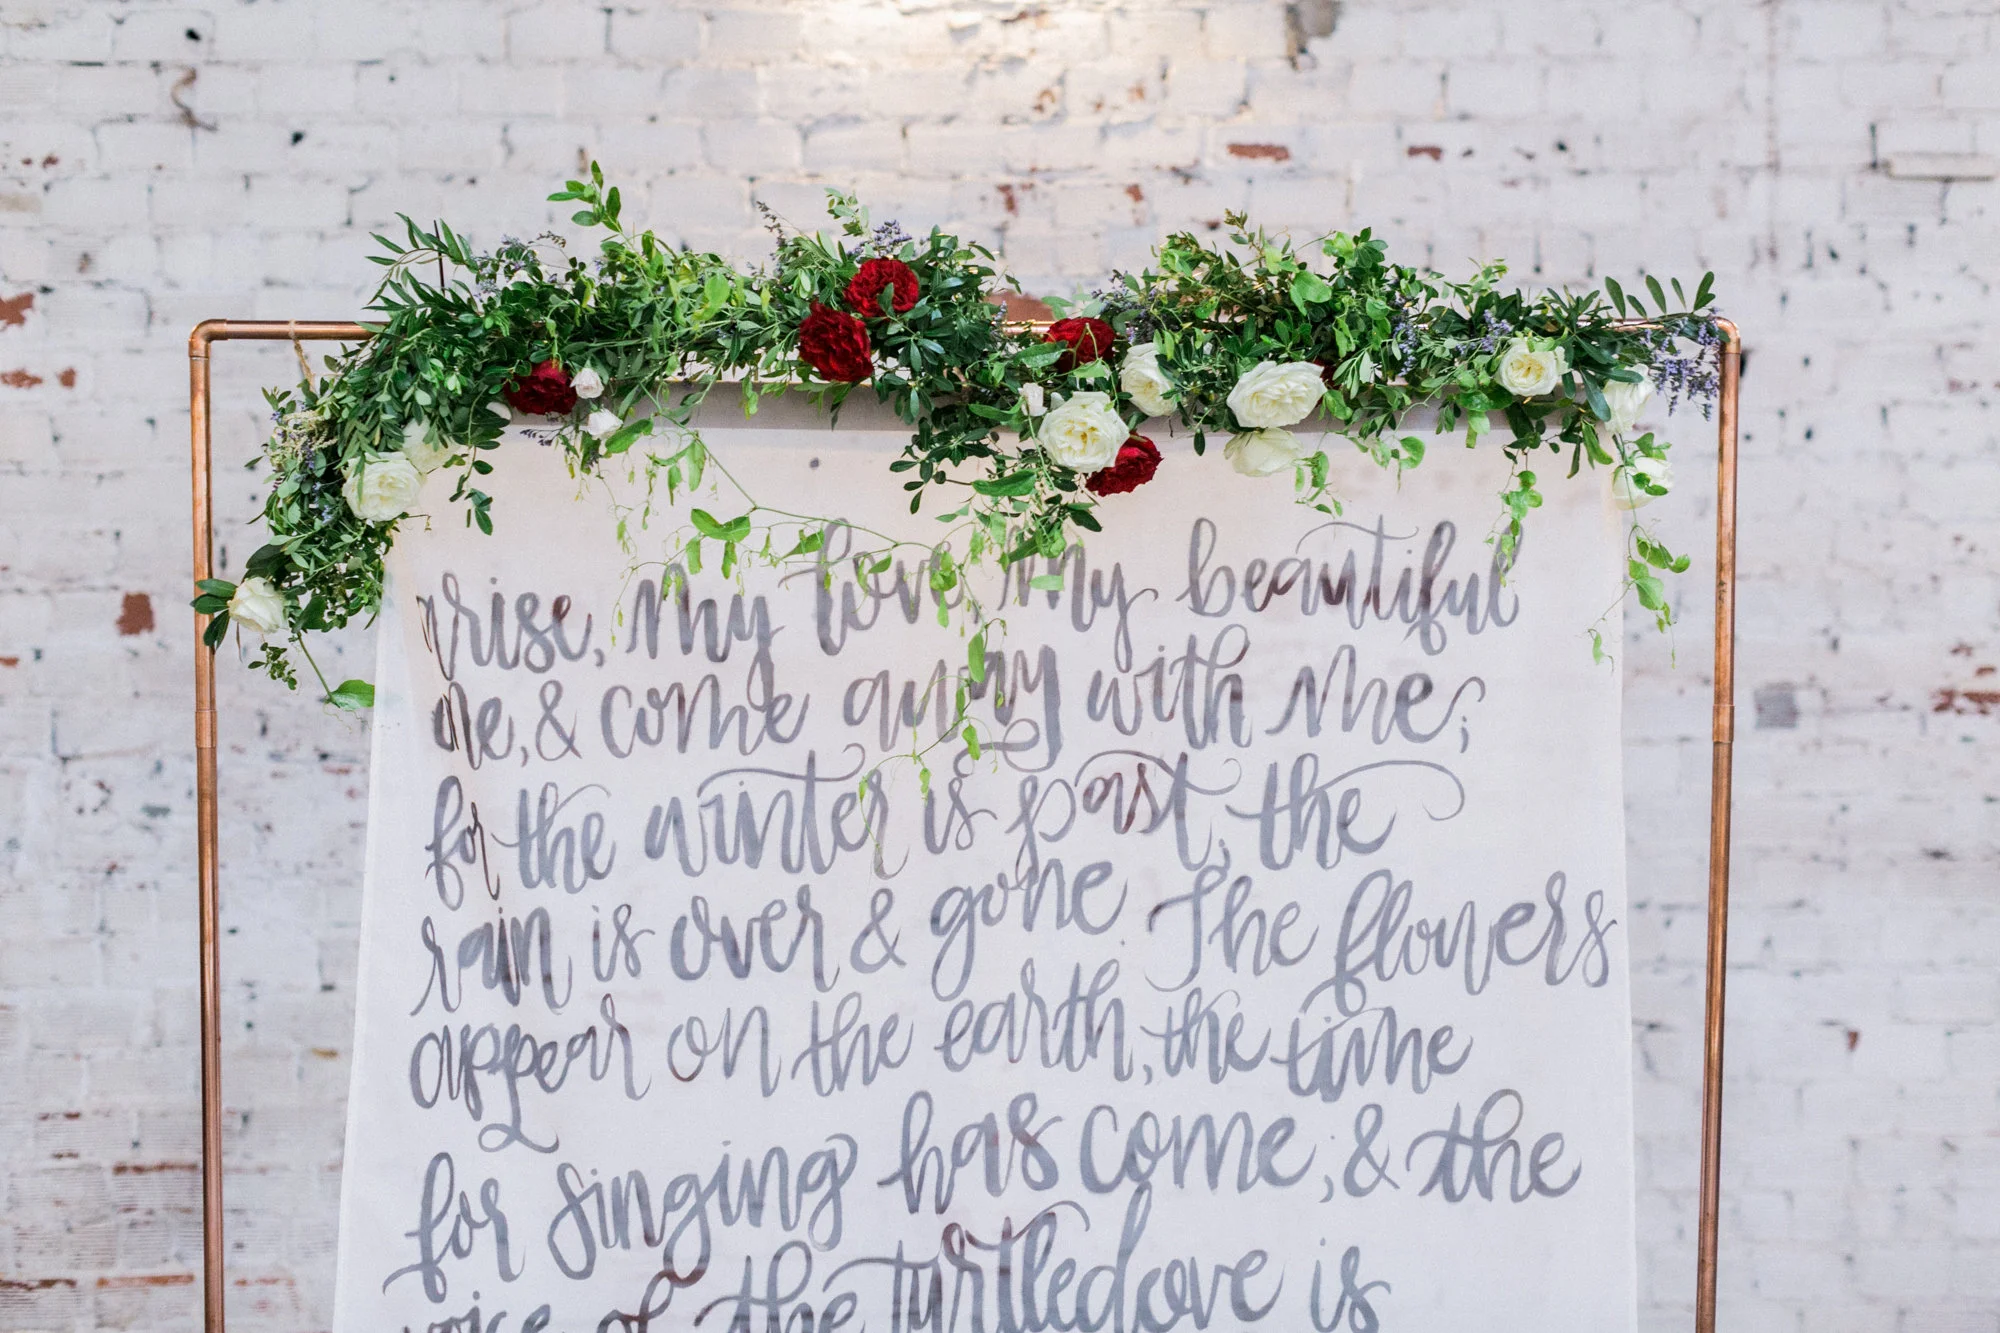 arise, my love, my beautiful
one, & come away with me;
for the winter is past, the
rain is over & gone. The flowers
appear on the earth, the time
for singing has come, & the
voice of the turtledove is